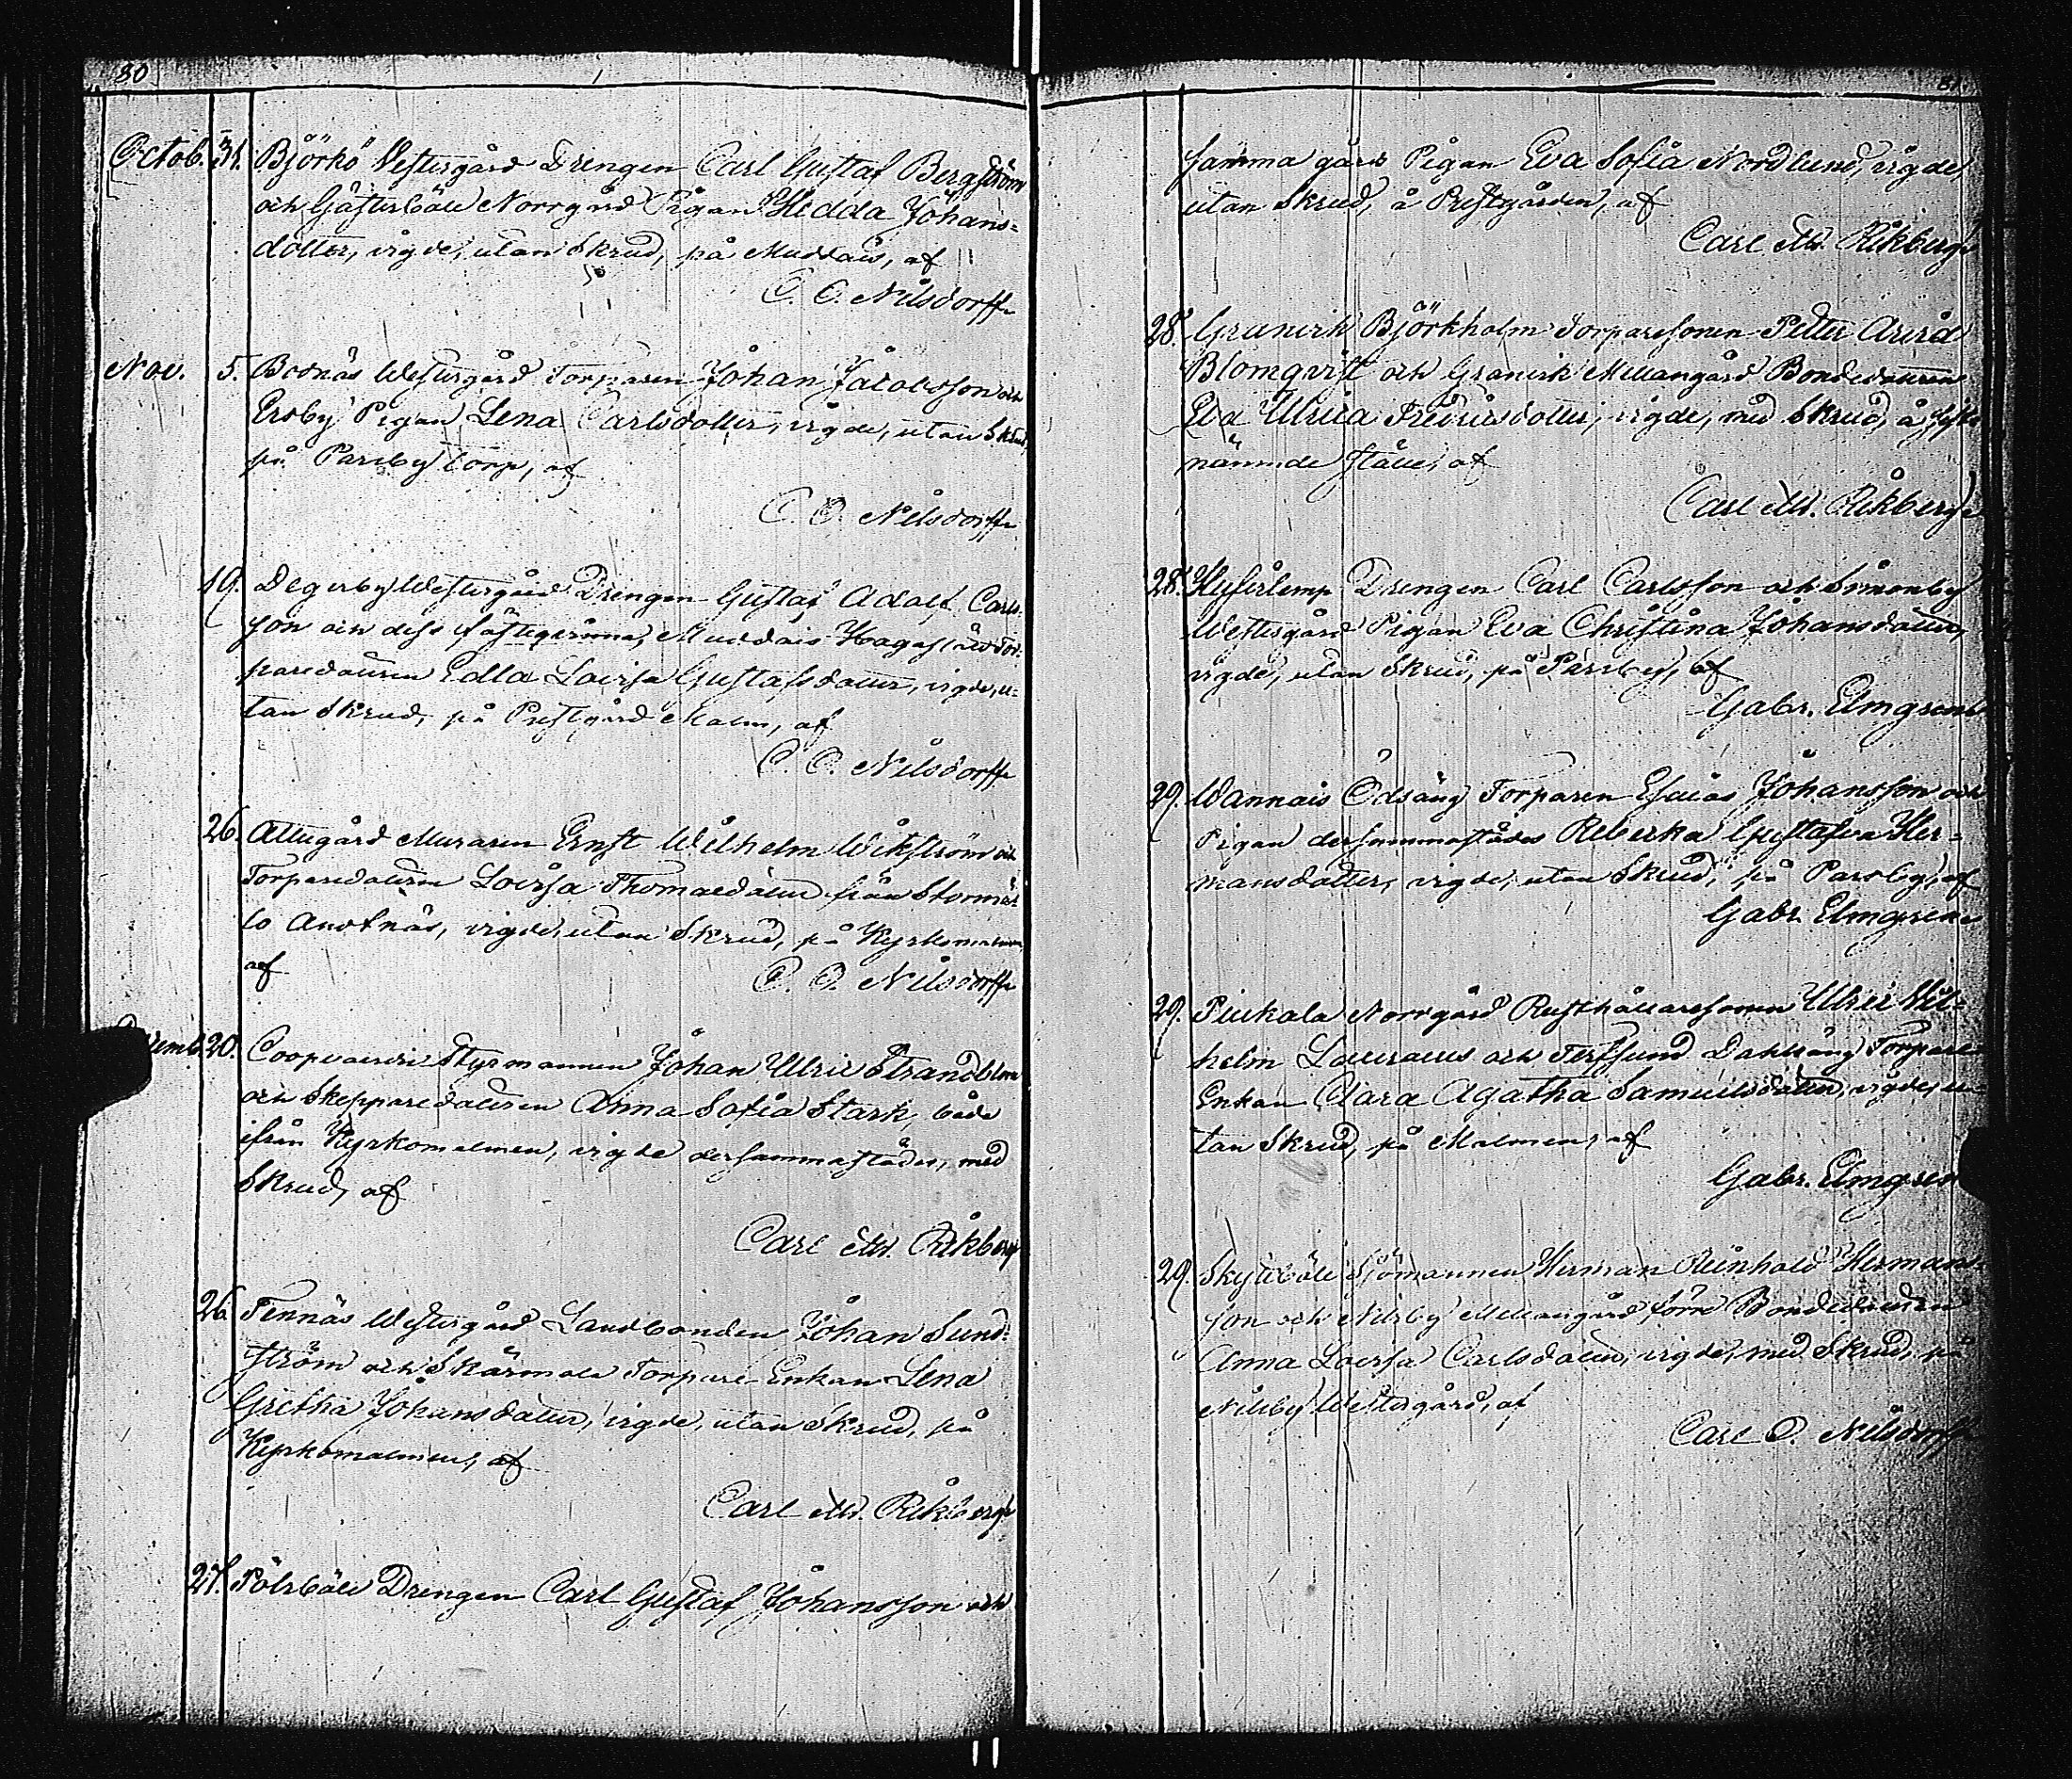 80
Octob. 31. Björkö Westergård Drengen Carl Gustaf Bergström
och Gästerböle Norrgård Pigan Hedda Johans-
dotter, vigde, utan Skrud, på Muddais, af
C. O. Nilsdorff
Nov. 5. Bodnäs Westergård Torparen Johan Jacobsson och
Ersby Pigan Lena Carlsdotter, vigde, utan Skrud,
på Parsby torp, af
C. O. Nilsdorff
19. Degerby Westergård Drengen Gustaf Adolf Carls-
son och dess fästeqvinna, Muddais Hagas Tor-
paredottren Edla Lovisa Gustafsdotter, vigde, u-
tan Skrud, på Prestgård Malm, af
C. O. Nilsdorff
26. Attugård Muraren Ernst Wilhelm Wikström och
Torparedottren Lovisa Thomasdotter från
lo Andtnäs, vigde, utan Skrud, på Kyrkomalmen
af C. O. Nilsdorff
20. Coopvaerdie Styrmannen Johan Ulric Strandblom
och Skepparedottren Anna Sofia Stark, båda
ifrån Kyrkomalmen, vigde dersammastädes, med
Skrud, af
Carl M. Rikberg
26. Tennäs Westergård Landbonden Johan Sund-
ström och Skärmola Torpare Enkan Lena
Gretha Johansdotter, vigde, utan Skrud, på
Kyrkomalmen, af
Carl M. Rikberg
27. Pölsböle Drengen Carl Gustaf Johansson och
81.
samma gård Pigan Eva Sofia Nordlund, vigde
utan Skrud, å Prestgården, af
Carl M. Rikberg
28. Granvik Björkholm Torparesonen Petter Arvid
Blomqvist och Granvik Mellangård Bondedottren
Eva Ulrica Fredricsdotter, vigde, med Skrud, å
nämnde ställe, af
Carl M. Rikberg
28. Drengen Carl Carlsson och Simonby
Westergård Pigan Eva Christina Johansdotter,
vigde, utan Skrud, på Parsby, af
Gabr. Elmgren
29. Wannais Ödsäng Torparen Esaias Johansson och
Pigan dersammastädes Rebecka Gustafva Her-
mansdotter, vigde, utan Skrud, på Parsby, af
Gabr. Elmgren
29. Piukala Norrgård Rusthållaresonen Ulric Wil-
helm Lauraeus och Terfsund Dahlsäng Torpare
Enkan Clara Agatha Samuelsdotter, vigde, u-
tan Skrud, på Malmen, af
Gabr. Elmgren
29. Skyttböle Sjömannen Herman Reinhold Hermans-
son och Nilsby Mellangård förre Bondedottren
Anna Lovisa Carlsdotter, vigde, med Skrud, på
Nilsby Westergård, af
Carl O. Nilsdorff